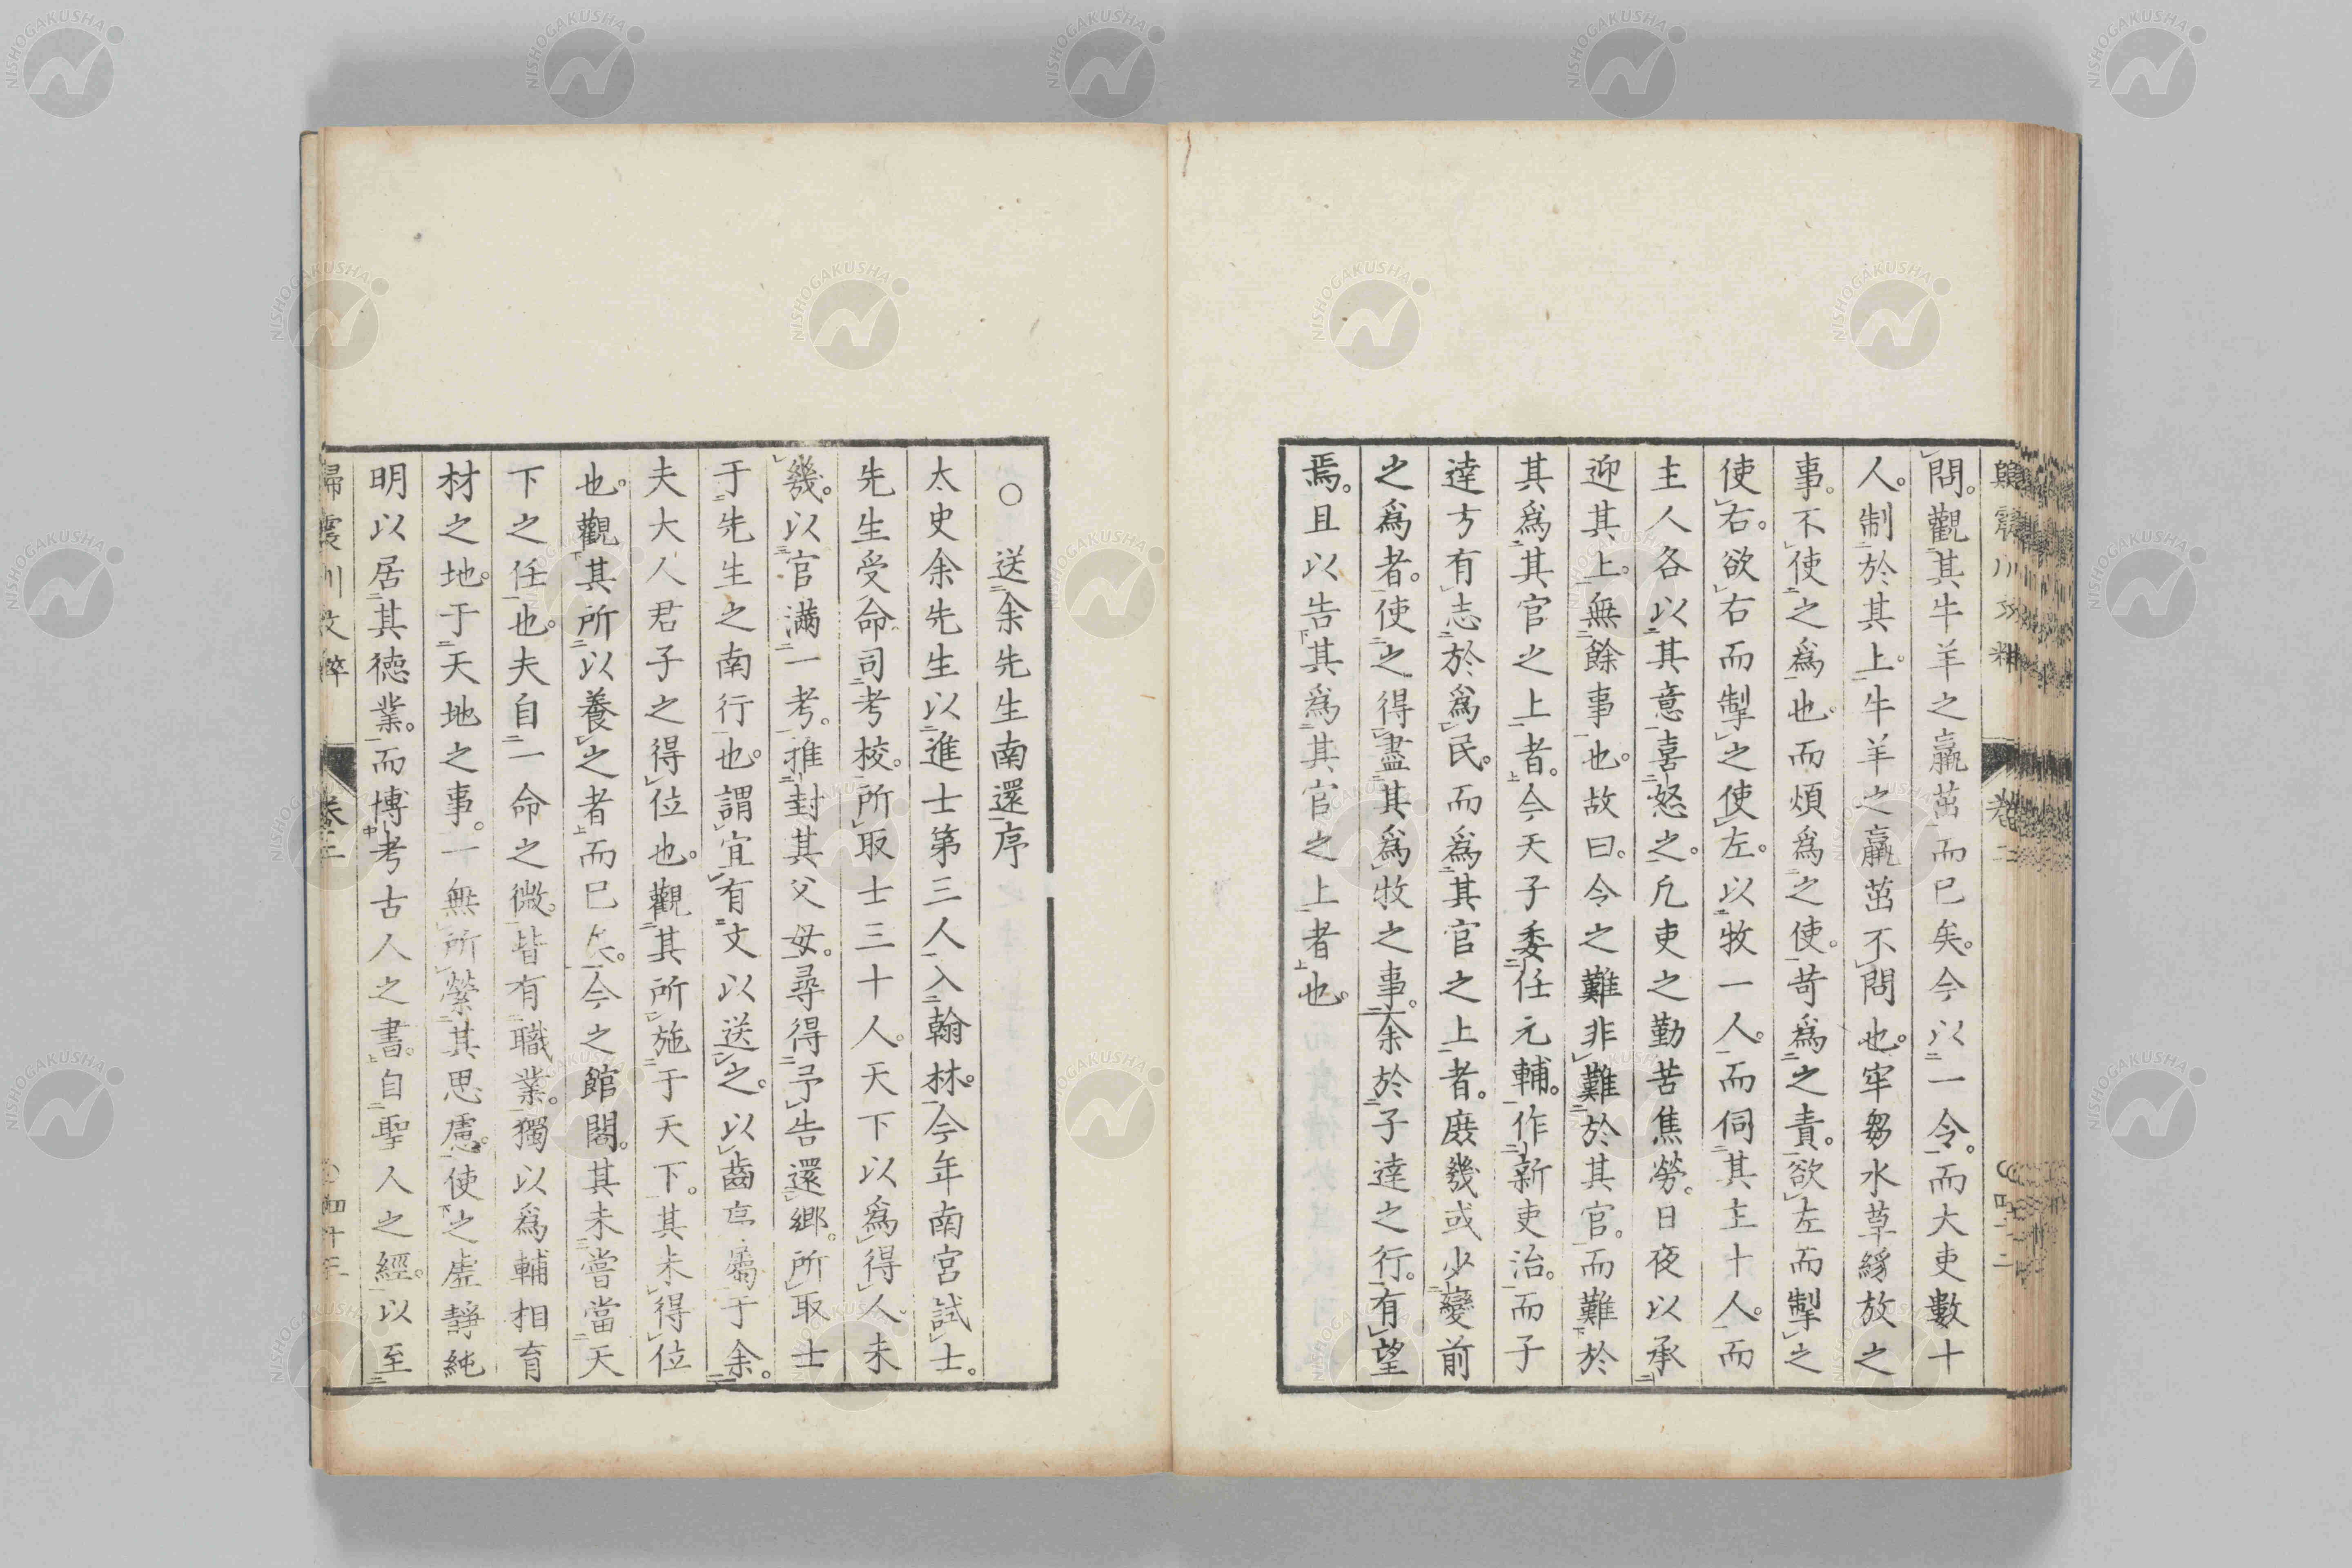 問。觀其牛羊之羸茁而已矣。今以一令。而大吏數十
人。制於其上。牛羊之羸茁不問也。牢芻水草縱放之
事。不使之爲也。而煩爲之使。苛爲之責。欲左而掣之
使右。欲右而掣之使左。以牧一人。而伺其主十人。而
主人各以其意喜怒之。凡吏之勤苦焦勞。日夜以承
迎其上。無餘事也。故曰。令之難非難於其官。而難於
其爲其官之上者。今天子委任元輔。作新吏治。而子
達方有志於爲民。而爲其官之上者。庶幾或少變前
之爲者。使之得盡其爲牧之事。余於子達之行。有望
焉。且以告其爲其官之上者也。
○送余先生南還序
太史余先生以進士第三人入翰林。今年南宮試士。
先生受命司考校。所取士三十人。天下以爲得人未
幾。以官滿一考。推封其父母。尋得予告還鄉。所取士
于先生之南行也。謂宜有文以送之。以齒屬于余。
夫大人君子之得位也。觀其所施于天下。其未得位
也。觀其所以養之者而已矣。今之館閣。其未嘗當天
下之任也。夫自一命之微。皆有職業。獨以爲輔相育
材之地。于天地之事。一無所縈其思慮。使之虛靜純
明以居其徳業。而博考古人之書。自聖人之經。以至
歸震川文粹 卷二